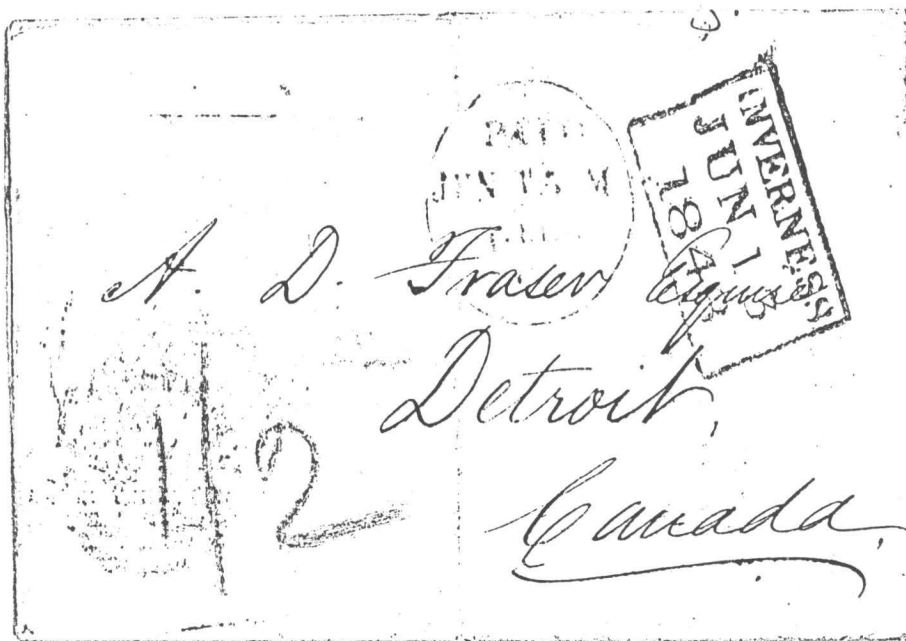 PAID
JUN 15
INVERNESS
JUN 13
184
A. D. Fraser Esquire
Detroit,
Canada,
1/2